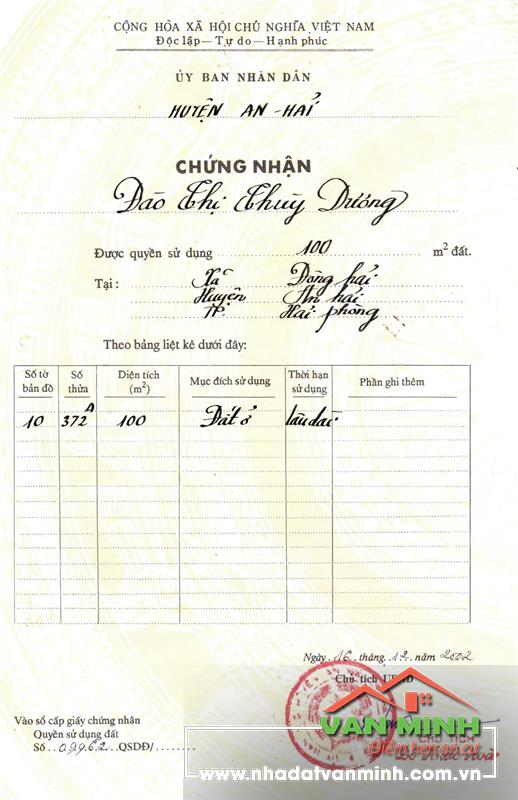 CỘNG HÒA XÃ HỘI CHỦ NGHĨA VIỆT NAM
Độc lập — Tự do — Hạnh phúc
ỦY BAN NHÂN DÂN
HUYỆN AN-HẢI
CHỨNG NHẬN
Đào Thị Thùy Dương
Được quyền sử dụng 100 m² đất.
Tại: Xã Đông hải
Huyện An hải
TP. Hải phòng
Theo bảng liệt kê dưới đây:
Số tờ bản đồ Số thửa Diện tích (m²) Mục đích sử dụng Thời hạn sử dụng Phần ghi thêm
10 372A 100 Đất ở Lâu dài
Ngày 16 tháng 12 năm 2002
Chủ tịch UBND
Vào sổ cấp giấy chứng nhận
Quyền sử dụng đất
Số 09962 QSDĐ/
VAN MINH
CHỦ TỊCH
Điểm hẹn an cư
www.nhadatvanminh.com.vn